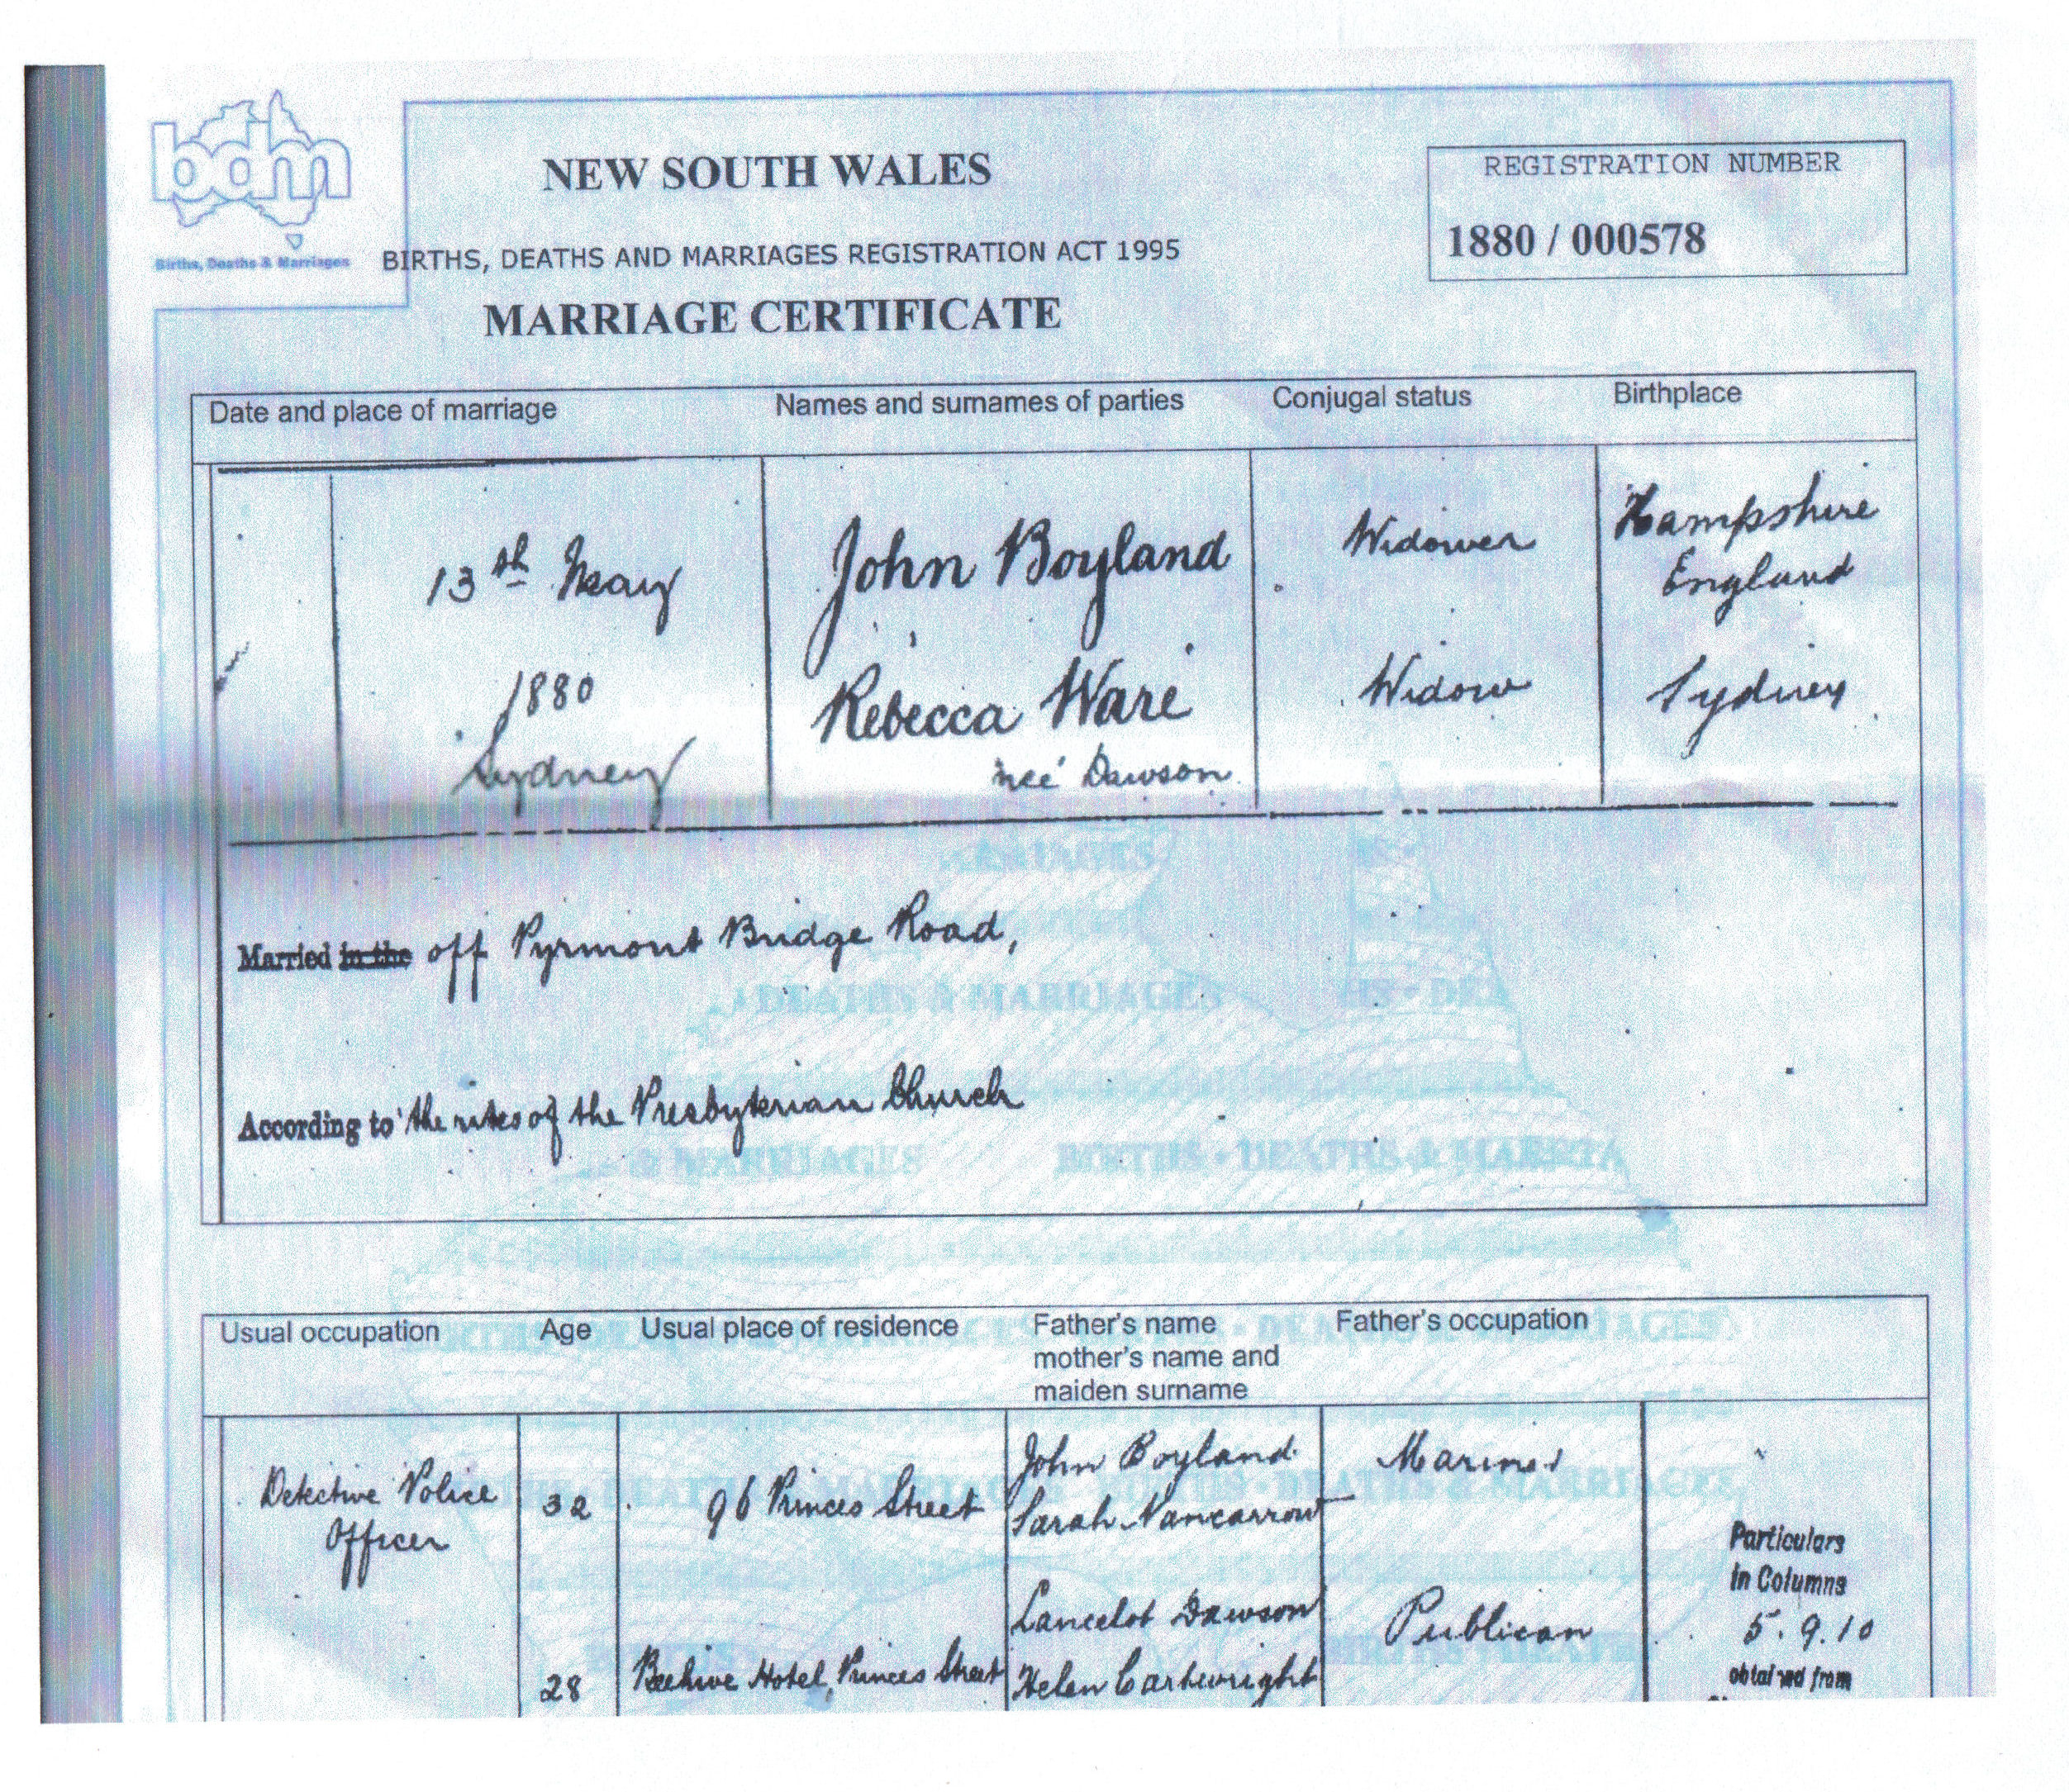 bdm
Births, Deaths & Marriages
NEW SOUTH WALES
BIRTHS, DEATHS AND MARRIAGES REGISTRATION ACT 1995
MARRIAGE CERTIFICATE
REGISTRATION NUMBER
1880 / 000578
Date and place of marriage Names and surnames of parties Conjugal status Birthplace
13th May John Boyland Widower Hampshire England
1880 Rebecca Ware Widow Sydney
Sydney née Dawson
Married in the off Pyrmont Bridge Road,
According to the rites of the Presbyterian Church
Usual occupation Age Usual place of residence Father's name Father's occupation
mother's name and
maiden surname
Detective Police 32 96 Princes Street John Boyland
Officer Sarah Nancarrow
Lancelot Dawson Publican
28 Beehive Hotel, Princes Street Helen Cartwright
Particulars
in Columns
5.9.10
obtained from